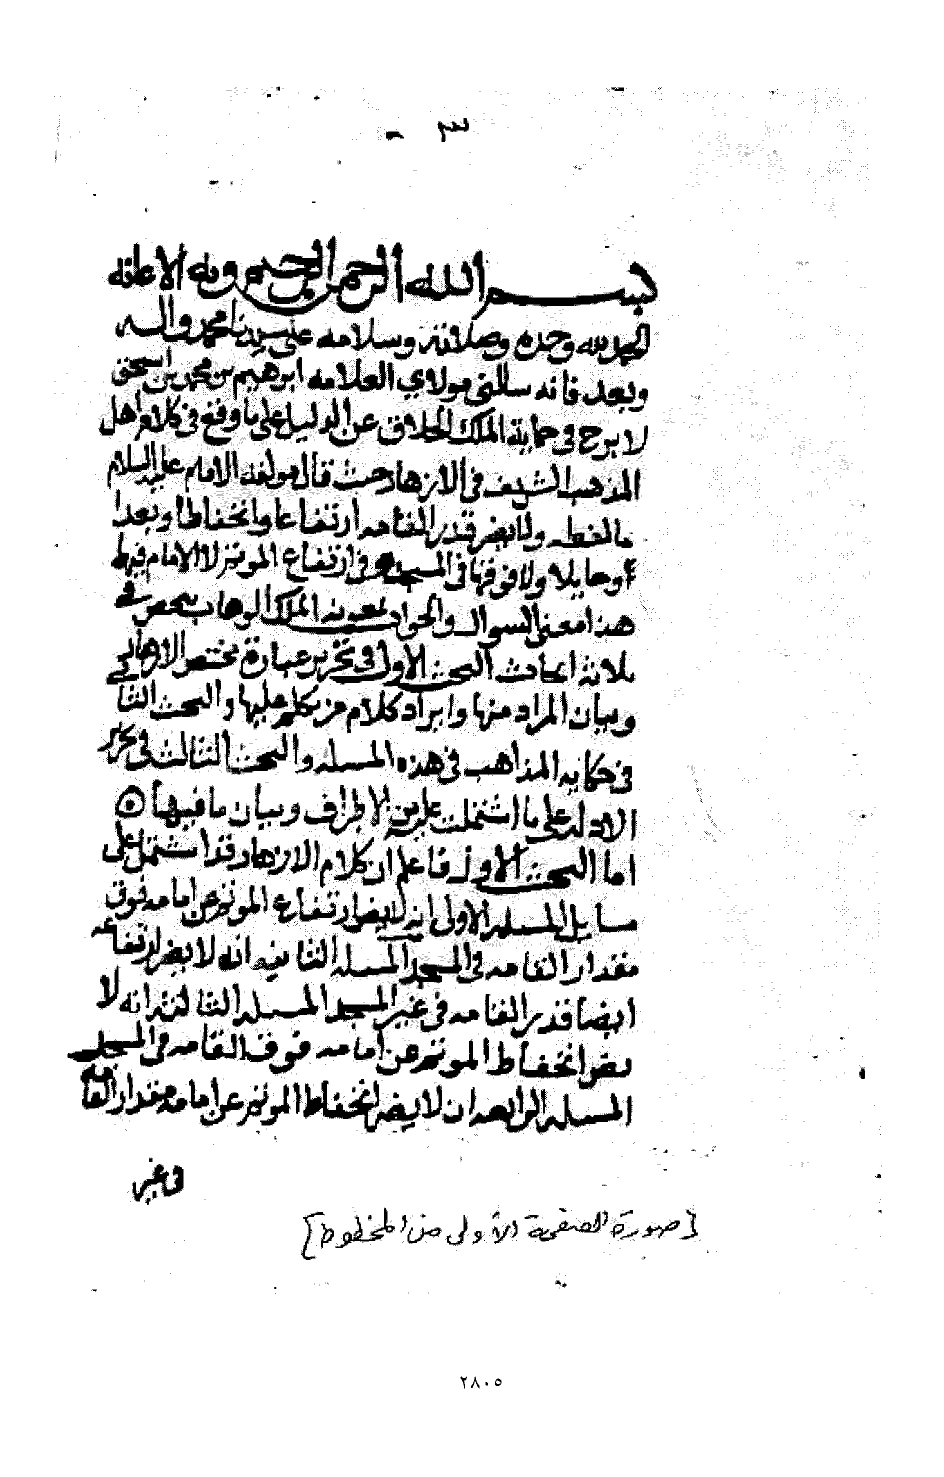 ٣ -
بسم الله الرحمن الرحيم وبه الاعانه
الحمد لله وحده وصلاته وسلامه على سيدنا محمد واله
وبعد فانه سالني مولاي العلامه ابرهيم بن محمد بن اسحق
لا برح في حماية الملك الخلاق عن الدليل على ما وقع في كلام اهل
المذهب الشريف في الازهار حيث قال مولفه الامام عليه السلام
ما لفظه ولا يضر قدر القامه ارتفاعا وانخفاطا وبعدا
او حايلا ولا فوقها في المسجد او في ارتفاع الموتم لا الامام فيهما
هذا معنى السوال والجواب بمعونه الملك الوهاب ينحصر في
ثلاثة ابحاث البحث الاول في تحرير عبارة مختصر الازهار
وبيان المراد منها وايراد كلام من تكلم عليها والبحث الثا
في حكايه المذاهب في هذه المسله والبحث الثالث في تحرير
الادله على ما اشتملت عليه من الاطراف وبيان ما فيها ٥
اما البحث الاول فاعلم ان كلام الازهار قد اشتمل على
مسايل المسله الاولى انه لا يضر ارتفاع الموتم عن امامه فوق
مقدار القامه في المسجد المسله الثانيه انه لا يضر ارتفاعه
ايضا قدر القامه في غير المسجد المسله الثالثه انه لا
يضر انخفاط الموتم عن امامه فوق القامه في المسجد
المسله الرابعه ان لا يضر انخفاط الموتم عن امامه مقدار القامه
في غير
[صورة الصفحة الأولى من المخطوط]
٢٨٠٥